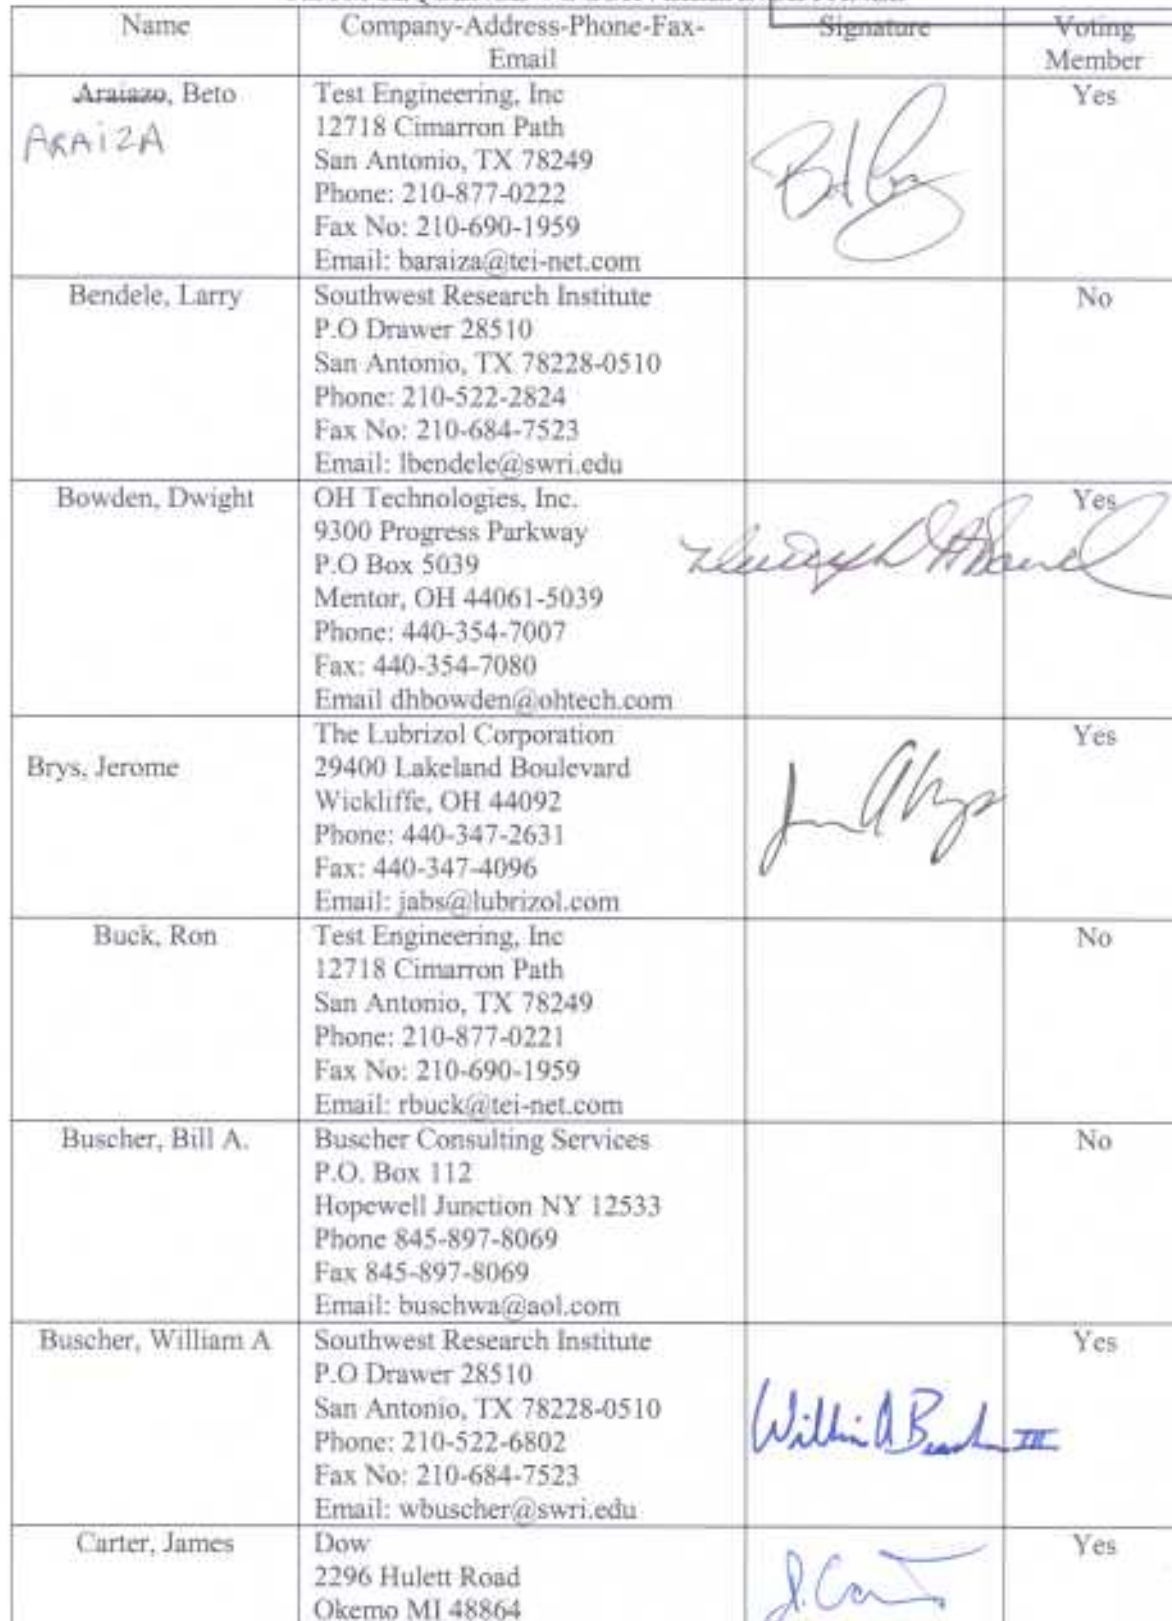 Name
Company-Address-Phone-Fax-
Email
Signature
Voting
Member
Araiazo, Beto
ARAIZA
Test Engineering, Inc
12718 Cimarron Path
San Antonio, TX 78249
Phone: 210-877-0222
Fax No: 210-690-1959
Email: baraiza@tei-net.com
Yes
Bendele, Larry
Southwest Research Institute
P.O Drawer 28510
San Antonio, TX 78228-0510
Phone: 210-522-2824
Fax No: 210-684-7523
Email: lbendele@swri.edu
No
Bowden, Dwight
OH Technologies, Inc.
9300 Progress Parkway
P.O Box 5039
Mentor, OH 44061-5039
Phone: 440-354-7007
Fax: 440-354-7080
Email dhbowden@ohtech.com
Yes
Brys, Jerome
The Lubrizol Corporation
29400 Lakeland Boulevard
Wickliffe, OH 44092
Phone: 440-347-2631
Fax: 440-347-4096
Email: jabs@lubrizol.com
Yes
Buck, Ron
Test Engineering, Inc
12718 Cimarron Path
San Antonio, TX 78249
Phone: 210-877-0221
Fax No: 210-690-1959
Email: rbuck@tei-net.com
No
Buscher, Bill A.
Buscher Consulting Services
P.O. Box 112
Hopewell Junction NY 12533
Phone 845-897-8069
Fax 845-897-8069
Email: buschwa@aol.com
No
Buscher, William A
Southwest Research Institute
P.O Drawer 28510
San Antonio, TX 78228-0510
Phone: 210-522-6802
Fax No: 210-684-7523
Email: wbuscher@swri.edu
William A Buscher III
Yes
Carter, James
Dow
2296 Hulett Road
Okemo MI 48864
Yes